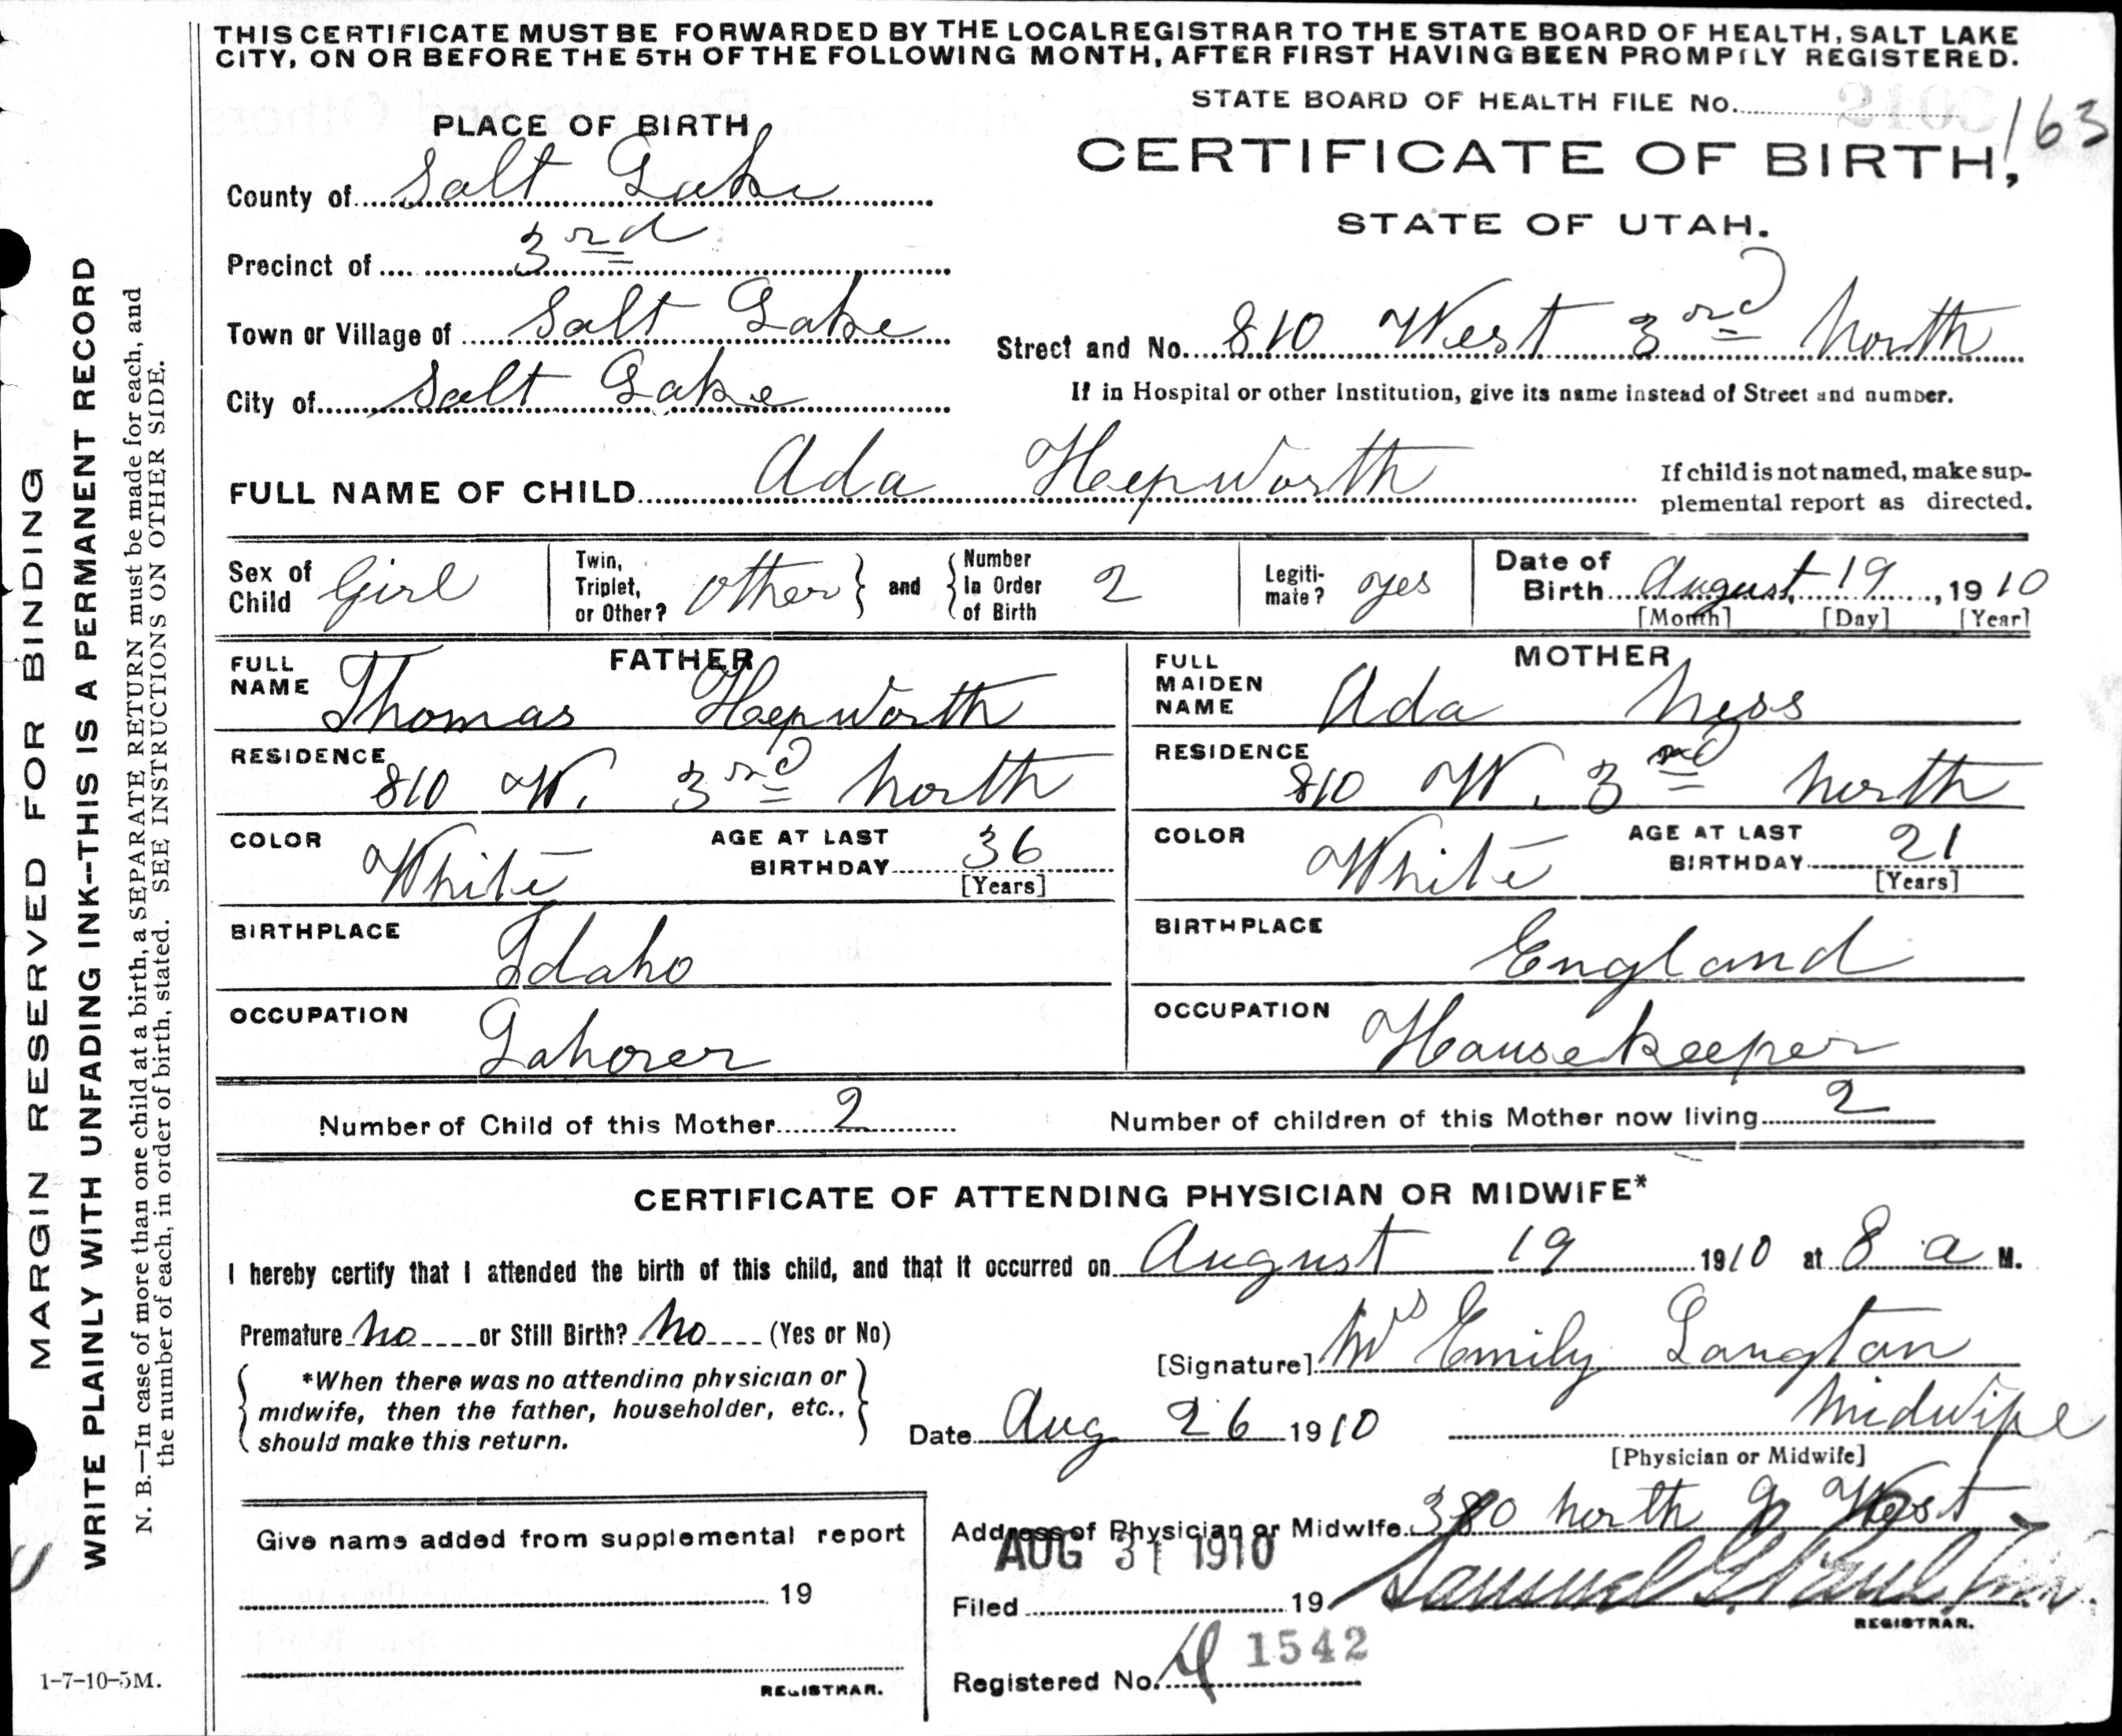 THIS CERTIFICATE MUST BE FORWARDED BY THE LOCAL REGISTRAR TO THE STATE BOARD OF HEALTH, SALT LAKE
CITY, ON OR BEFORE THE 5TH OF THE FOLLOWING MONTH, AFTER FIRST HAVING BEEN PROMPTLY REGISTERED.
STATE BOARD OF HEALTH FILE NO. 163
PLACE OF BIRTH
CERTIFICATE OF BIRTH,
STATE OF UTAH.
County of Salt Lake
Precinct of 3rd
Town or Village of Salt Lake
Street and No. 810 West 3rd North
City of Salt Lake
If in Hospital or other Institution, give its name instead of Street and number.
FULL NAME OF CHILD Ada Hepworth
If child is not named, make sup-
plemental report as directed.
Sex of Child Girl
Twin, Triplet, or Other? Other and Number In Order of Birth 2
Legiti-mate? yes
Date of Birth August 19, 1910
[Month] [Day] [Year]
FATHER
FULL NAME Thomas Hepworth
RESIDENCE 810 W. 3rd North
COLOR White AGE AT LAST BIRTHDAY 36 [Years]
BIRTHPLACE Idaho
OCCUPATION Laborer
MOTHER
FULL MAIDEN NAME Ada Ness
RESIDENCE 810 W. 3rd North
COLOR White AGE AT LAST BIRTHDAY 21 [Years]
BIRTHPLACE England
OCCUPATION Housekeeper
Number of Child of this Mother 2 Number of children of this Mother now living 2
CERTIFICATE OF ATTENDING PHYSICIAN OR MIDWIFE*
I hereby certify that I attended the birth of this child, and that it occurred on August 19 1910 at 8 a M.
Premature No or Still Birth? No (Yes or No)
[Signature] Mrs Emily Langton
*When there was no attending physician or
midwife, then the father, householder, etc.,
should make this return.
Date Aug 26 1910 Midwife
[Physician or Midwife]
Give name added from supplemental report
19
REGISTRAR.
Address of Physician or Midwife 380 North 9 West
AUG 31 1910
Filed 19 Samuel G. Paul
REGISTRAR.
Registered No. 1542
MARGIN RESERVED FOR BINDING
WRITE PLAINLY WITH UNFADING INK--THIS IS A PERMANENT RECORD
N. B.—In case of more than one child at a birth, a SEPARATE RETURN must be made for each, and
the number of each, in order of birth, stated. SEE INSTRUCTIONS ON OTHER SIDE.
1-7-10-5M.